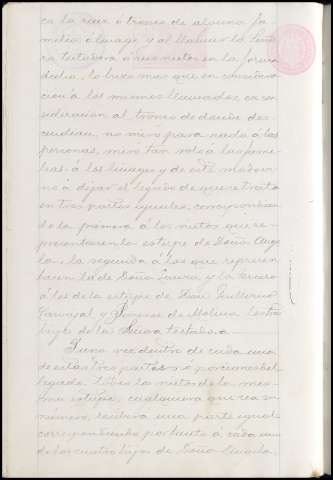 ca la raiz ó tronco de alguna fa-
milia ó linage y al llamar la Seño-
ra testadora á sus nietos en la forma
dicha, lo hizo mas que en considera-
cion á los mismos llamados, en con-
sideracion al tronco de donde des-
cendian, no miró para nada á las
personas, miró tan solo á las fami-
lias á los linages y de este modo vi-
no á dejar el legado de que se trata
en tres partes iguales, correspondien-
do la primera á los nietos que re-
presentaren la estirpe de Doña Ange-
la, la segunda á los que represen-
tasen la de Doña Laura y la tercera
á los de la estirpe de Don Guillermo
y de Molina
hijos de la Señora testadora
Y una vez dentro de cada una
de estas tres partes ó porciones del
legado, todos los nietos de la mis-
ma estirpe, cualquiera que sea su
número, tendrán una parte igual
correspondiendo por tanto á cada uno
de los cuatro hijos de Doña